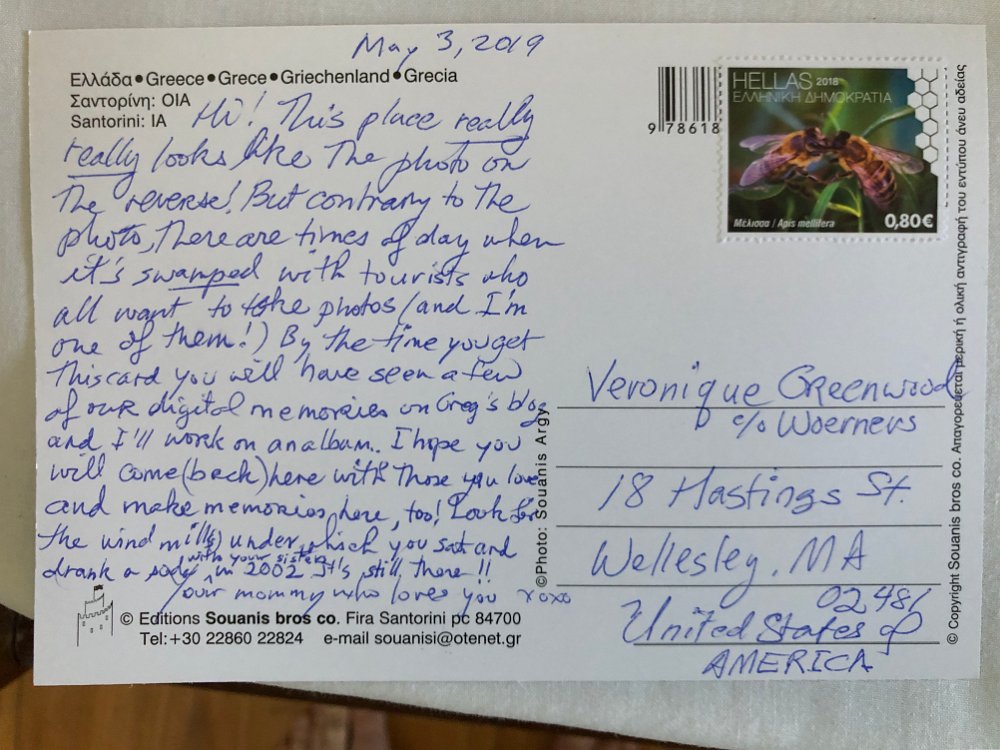 May 3, 2019
Ελλάδα • Greece • Grece • Griechenland • Grecia
Σαντορίνη: ΟΙΑ
Santorini: IA
Hi! This place really
really looks like the photo on
the reverse! But contrary to the
photo, there are times of day when
it's swamped with tourists who
all want to take photos (and I'm
one of them!) By the time you get
this card you will have seen a few
of our digital memories on Greg's blog
and I'll work on an album. I hope you
will come (back) here with those you love
and make memories here, too! Look for
the wind mill(s) under which you sat and
drank a soda with your sister in 2002 It's still there!!
Your mommy who loves you xoxo
© Editions Souanis bros co. Fira Santorini pc 84700
Tel:+30 22860 22824 e-mail souanisi@otenet.gr
©Photo: Souanis Argy.
9 78618
HELLAS 2018
ΕΛΛΗΝΙΚΗ ΔΗΜΟΚΡΑΤΙΑ
Μέλισσα / Apis mellifera
0,80€
Veronique Greenwood
c/o Woerners
18 Hastings St.
Wellesley, MA
02481
United States of
AMERICA
© Copyright Souanis bros co. Απαγορεύεται μερική ή ολική αντιγραφή του εντύπου άνευ αδείας